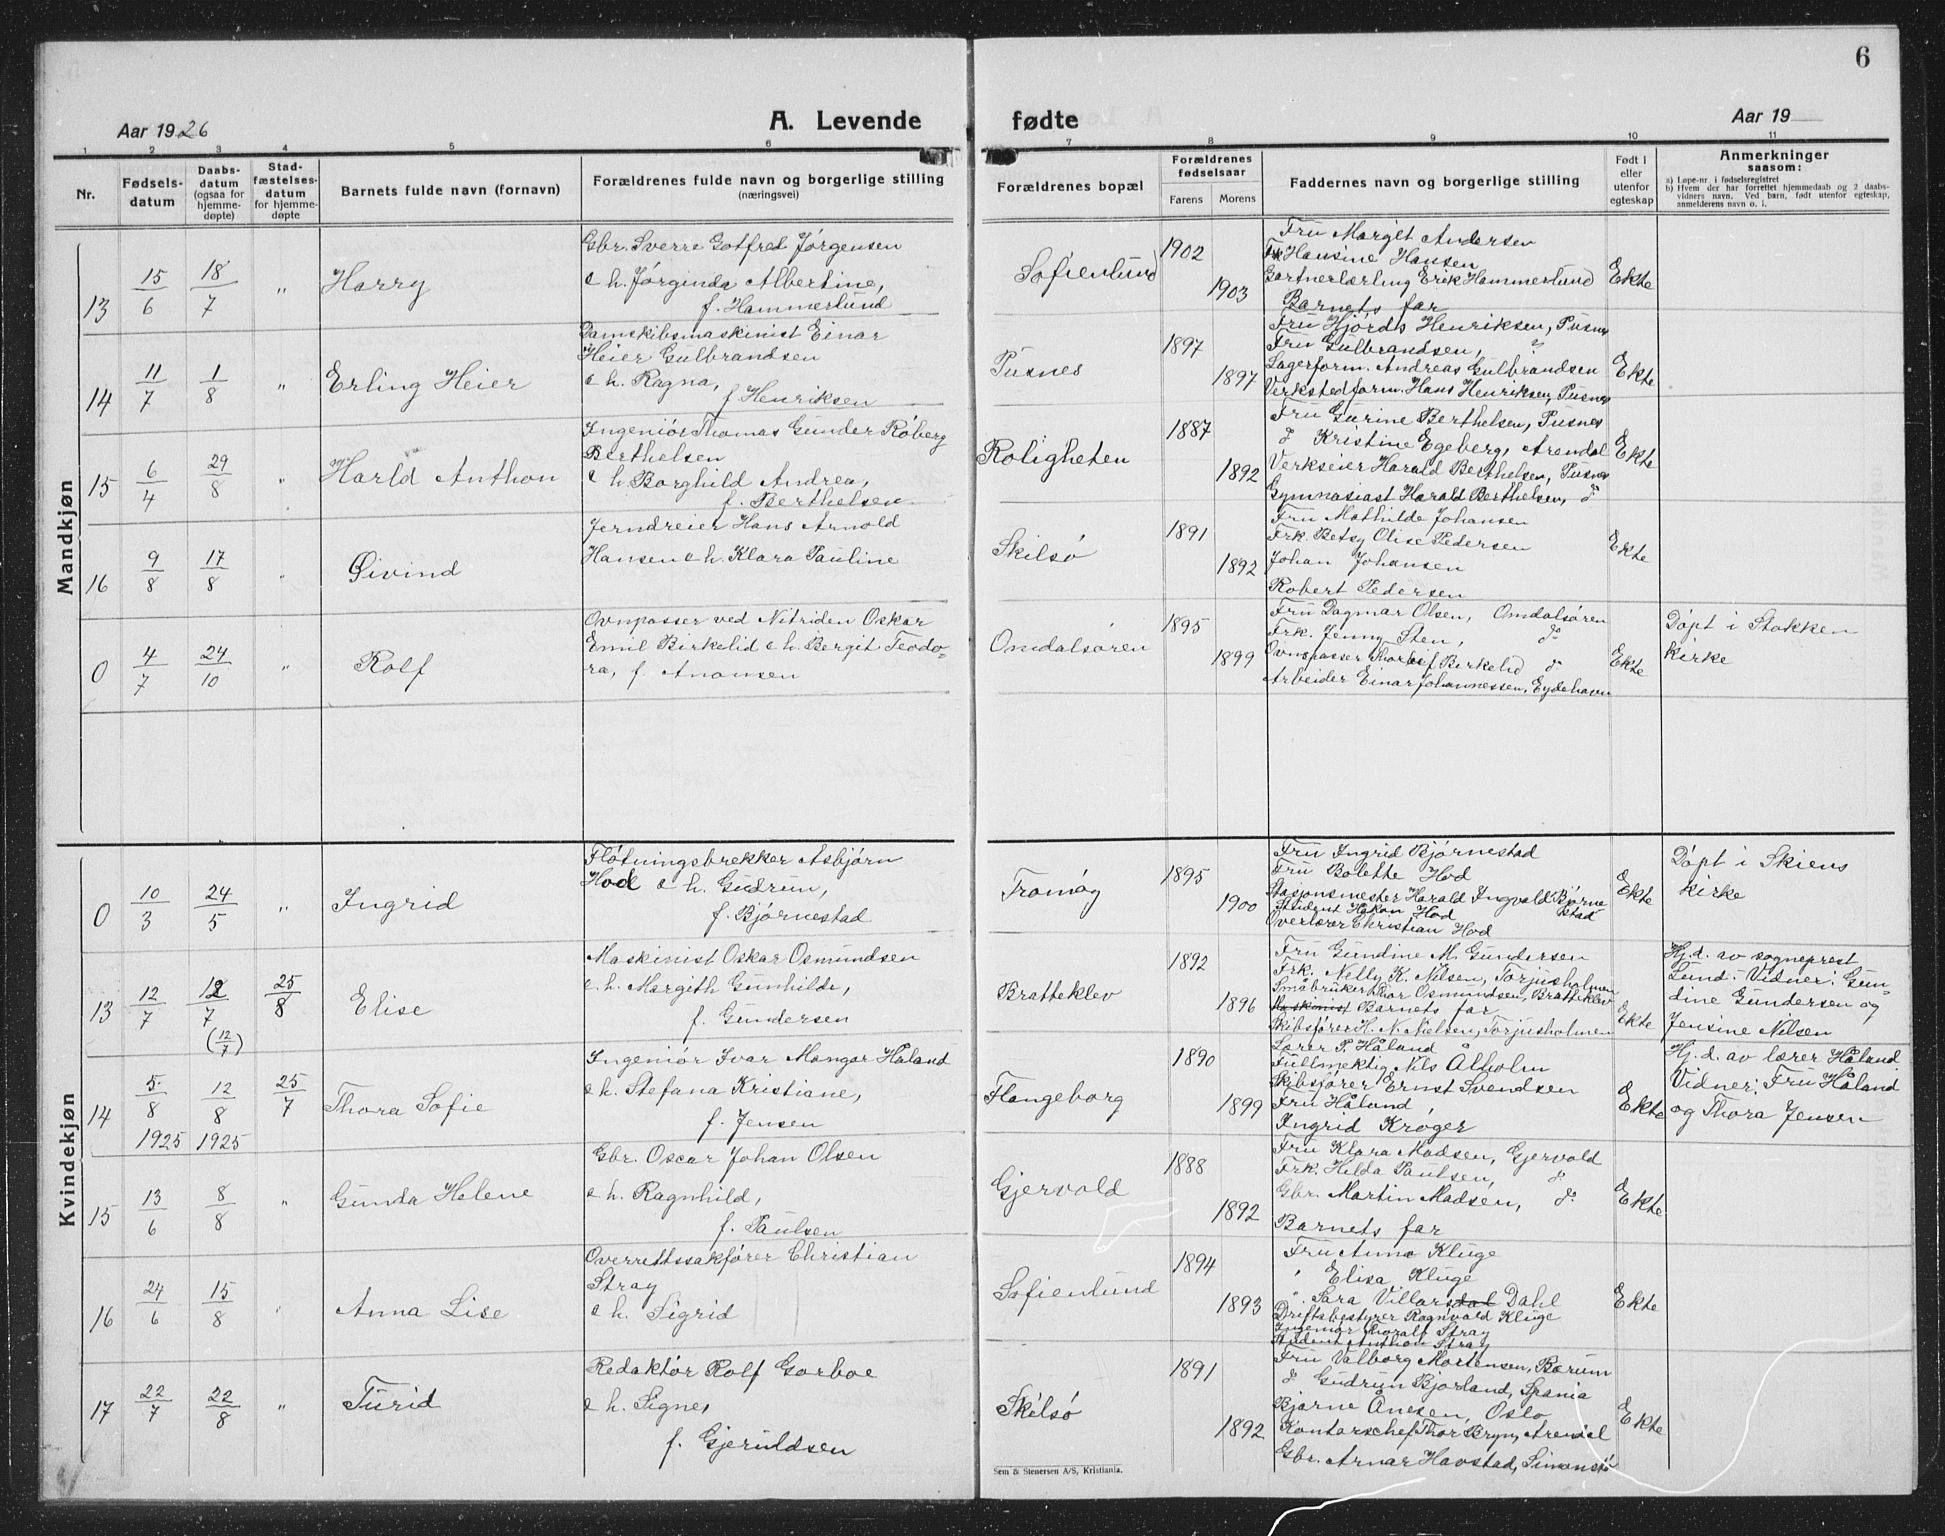 6
Aar 1926
A. Levende
fødte
Aar 19
1 2 3 4 5 6 7 8 9 10 11
Nr.
Fødsels-
datum
Daabs-
datum
(ogsaa for
hjemme-
døpte)
Stad-
fæstelses-
datum
for hjemme-
døpte
Barnets fulde navn (fornavn)
Forældrenes fulde navn og borgerlige stilling
(næringsvei)
Forældrenes bopæl
Forældrenes
fødselsaar
Farens Morens
Faddernes navn og borgerlige stilling
Født i
eller
utenfor
egteskap
Anmerkninger
saasom:
a) Løpe-nr. i fødselsregistret
b) Hvem der har forrettet hjemmedaab og 2 daabs-
vidners navn. Ved barn, født utenfor egteskap,
anmelderens navn o. l.
Mandkjøn
13 15/6 18/7 " Harry
Gbr. Sverre Gotfred Jørgensen
e h. Jørginda Albertine,
f. Hammerlund
Sofienlund
1902
1903
Fru Margit Andersen
Frk Hansine Hansen
Gartnerlærling Erik Hammerlund
Barnets far
Ekte
14 11/7 1/8 " Erling Heier
Damskibsmaskinist Einar
Heier Gulbrandsen
e h. Ragna,
f. Henriksen
Pusnes
1897
1897
Fru Hjørdis Henriksen, Pusnes
Fru Gulbrandsen, "
Lagerform. Andreas Gulbrandsen
Verkstedform. Hans Henriksen, Pusnes
Ekte
15 6/4 29/8 " Harld Anthon
ra
Ingeniør Thomas Gunder Røberg
Berthelsen
e h. Borghild Andrea,
f. Berthelsen
Roligheten
1887
1892
Fru Gurine Berthelsen, Pusnes
d° Kristine Egeberg, Arendal
Verkseier Harald Berthelsen, Pusnes
Gymnasiast Harald Berthelsen, d°
Ekte
16 9/8 17/8 " Øivind
Jerndreier Hans Arnold
Hansen e h. Klara Pauline
Skilsø
1891
1892
Fru Mathilde Johansen
Frk. Betsy Olise Pedersen
Johan Johansen
Robert Pedersen
Ekte
0 4/7 24/10 " Rolf
Ovnpasser ved Nitriden Oskar
Emil Birkelid e h. Bergit Teodo-
ra, f. Anonsen
Omdalsøren
1895
1899
Fru Dagmar Olsen, Omdalsøren
Frk. Jenny Sten, d°
Ovnspasser Thorleif Birkelid d°
Arbeider Einar Johannessen, Eydehavn
Ekte
Døpt i Stokken
kirke
Kvindekjøn
0 10/3 24/5 " Ingrid
Fløtningsbrekker Asbjørn
Hod e h. Gudrun,
f. Bjørnestad
Tromøy
1895
1900
Fru Ingrid Bjørnestad
Fru Bolette Hod
Stasjonsmester Harald Ingvald Bjørne
stad
Student Håkon Hod
Overlærer Christian Hod
Ekte
Døpt i Skiens
kirke
13 12/7 12/7 25/8 Elise
(12/7)
Maskinist Oskar Osmundsen
e h. Margith Gunhilde,
f. Gundersen
Bratteklev
1892
1896
Fru Gundine M. Gundersen
Frk. Nelly K. Nilsen, Torjusholmen
Småbruker Thor Osmundsen, Bratteklev
Maskinist Barnets far
Skibsfører H. N. Nielsen, Torjusholmen
Ekte
Hj. d. av sogneprest
Lund. Vidner: Gun-
dine Gundersen og
Jensine Nilsen
14 5/8 12/8 25/7 Thora Sofie
1925 1925
Ingeniør Ivar Mangor Håland
e h. Stefana Kristiane,
f. Jensen
Flangeborg
1890
1899
Lærer P. Håland
Fullmektig Nils Åtholm
Skibsfører Ernst Svendsen
Fru Håland
Ingrid Krøger
Ekte
Hj. d. av lærer Håland
Vidner: Fru Håland
og Thora Jensen
15 13/6 8/8 " Gunda Helene
Gbr. Oscar Johan Olsen
e h. Ragnhild,
f. Paulsen
Gjervold
1888
1892
Fru Klara Madsen, Gjervold
Frk. Hilda Paulsen, d°
Gbr. Martin Madsen, d°.
Barnets far
Ekte
16 24/6 15/8 " Anna Lise
Overrettssakfører Christian
Stray
e h. Sigrid
Sofienlund
1894
1893
Fru Anna Kluge
" Elisa Kluge
" Sara Villarsdal Dahl
Driftsbestyrer Ragnvald Kluge
Ingeniør Thoralf Stray
Student Anthon Stray
Ekte
17 22/7 22/8 " Turid
Redaktør Rolf Gorboe
e h. Signe,
f. Gjeruldsen
Skilsø
1891
1892
Fru Valborg Mortensen, Bærum
d° Gudrun Bjorland, Spania
Bjarne Ånesen, Oslo
Kontorschef Thor Bryn, Arendal
Gbr. Arnar Havstad, Simonstø
Ekte
Sem & Stenersen A/S, Kristiania.